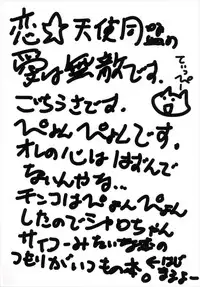 恋☆天使同盟の
愛は無敵です。
ごちうさです。
てぃっぴー
ぴょんぴょんです。
オレの心ははずんで
ないんやな…
チンコはぴょんぴょん
したのでシャロちゃん
サイコーみたいな本の
つもりがいつもの本。
←はじまるよー